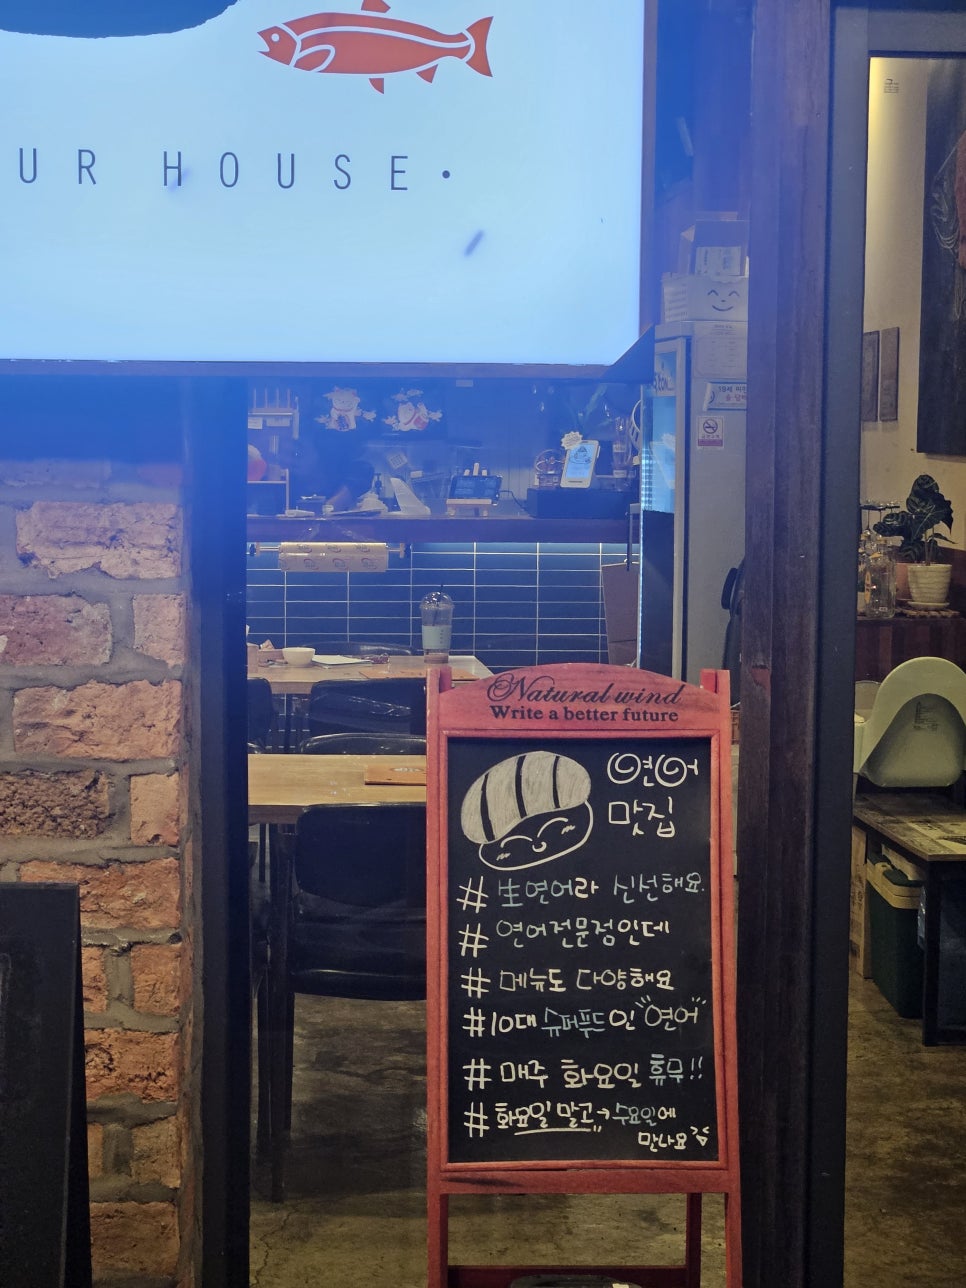 UR HOUSE·
Natural wind
Write a better future
연어
맛집
# 生연어라 신선해요.
# 연어전문점인데
# 메뉴도 다양해요
#10대 슈퍼푸드인 "연어"
# 매주 화요일 휴무!!
# 화요일말고,, → 수요일에
만나요